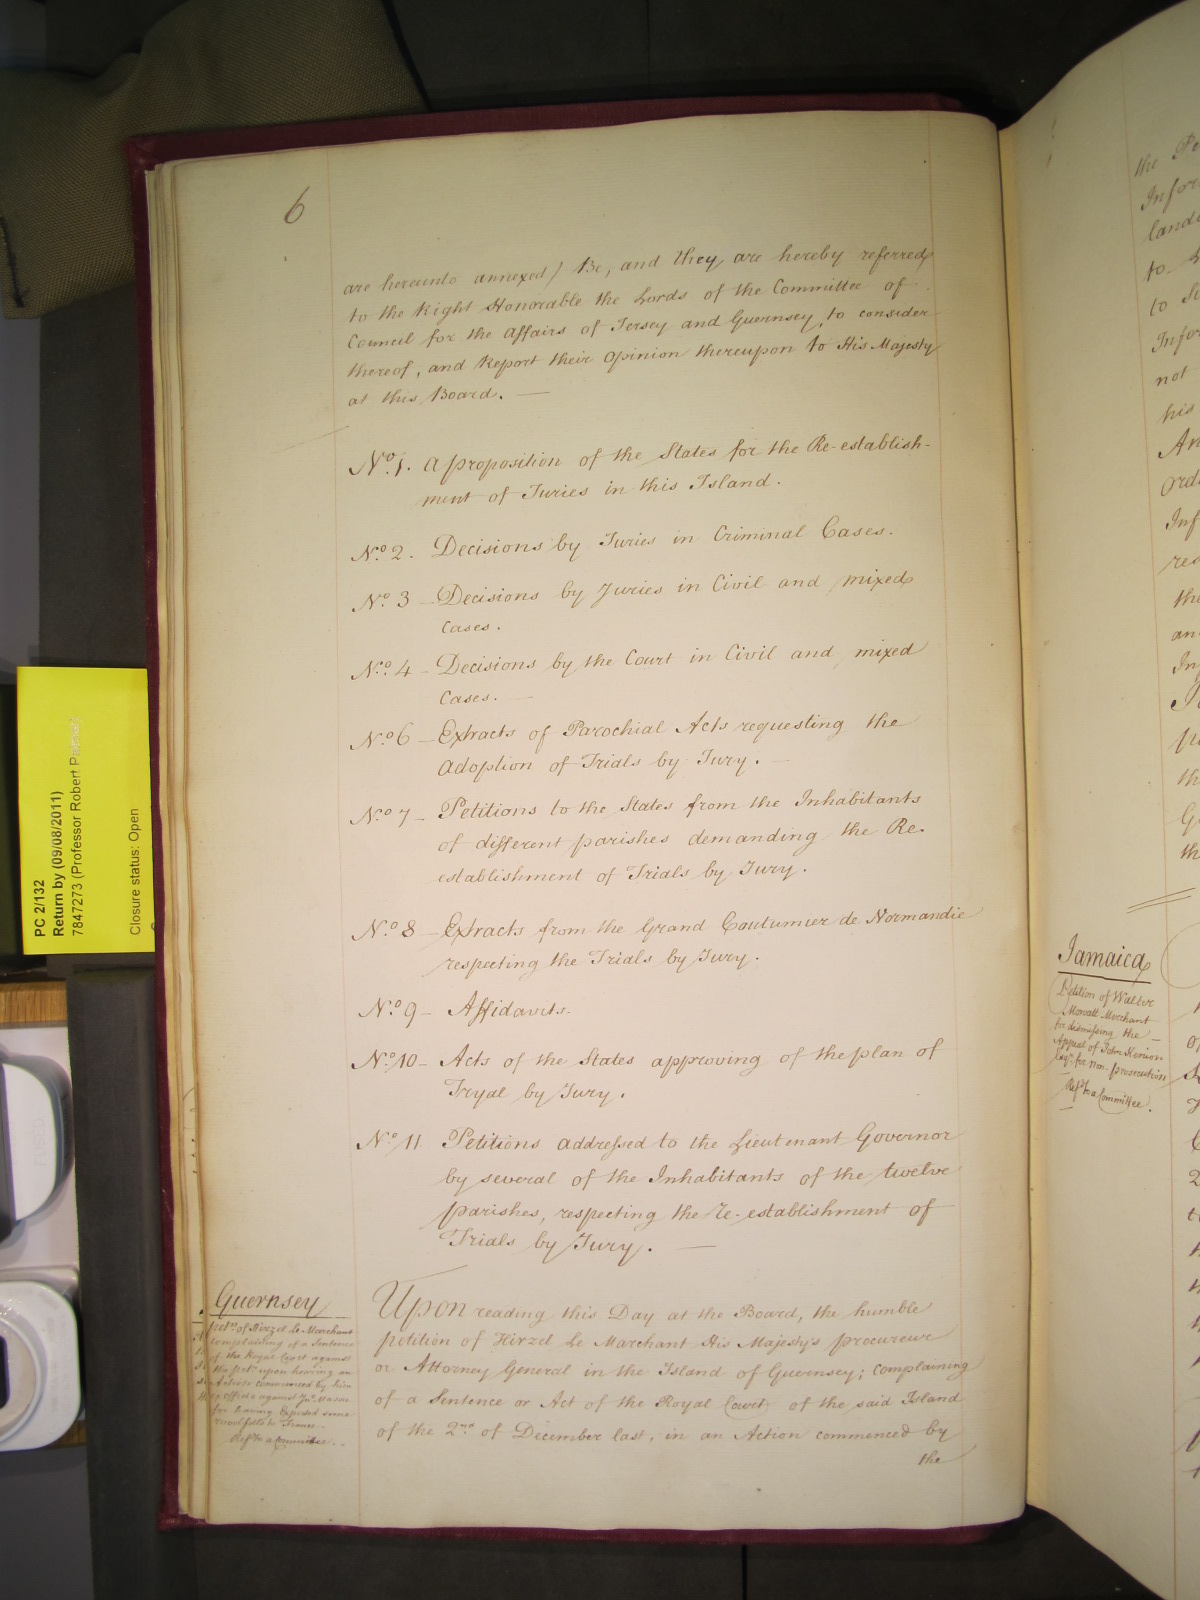 6
are hereunto annexed) Be, and they are hereby referred
to the Right Honorable the Lords of the Committee of
Council for the affairs of Jersey and Guernsey, to consider
thereof, and Report their opinion thereupon to His Majesty
at this Board. —
No. 1. a proposition of the States for the Re-establish-
ment of Juries in this Island.
No. 2. Decisions by Juries in Criminal Cases.
No. 3 – Decisions by Juries in Civil and mixed
Cases.
No. 4 – Decisions by the Court in Civil and mixed
Cases. —
No. 6 – Extracts of Parochial Acts requesting the
adoption of Trials by Jury. —
No. 7 – Petitions to the States from the Inhabitants
of different parishes demanding the Re-
establishment of Trials by Jury.
No. 8 – Extracts from the Grand Coutumier de Normandie
respecting the Trials by Jury.
No. 9 – Affidavits.
No. 10 – Acts of the States approving of the plan of
Tryal by Jury.
No. 11 Petitions addressed to the Lieutenant Governor
by several of the Inhabitants of the twelve
parishes, respecting the re-establishment of
Trials by Jury. —
Guernsey
petn. of Hirzel Le Marchant
complaining of a Sentence
of the Royal Court against
the petr. upon hearing an
Action commenced by him
ex Officio against Jn.
for having Exported some
to France.
Refd. to a Committee. –
Upon reading this Day at the Board, the humble
petition of Hirzel Le Marchant His Majesty's procureur
or Attorney General in the Island of Guernsey; complaining
of a Sentence or Act of the Royal Court of the said Island
of the 2nd. of December last, in an Action commenced by
the
PC 2/132
Return by (09/08/2011)
7847273 (Professor Robert
Closure status: Open
the
to
to
not
his
the
Jamaica
Petition of Walter
Mowatt Merchant
for dismissing the —
Appeal of John
Esqr. for non-prosecution
Refd. to a Committee.